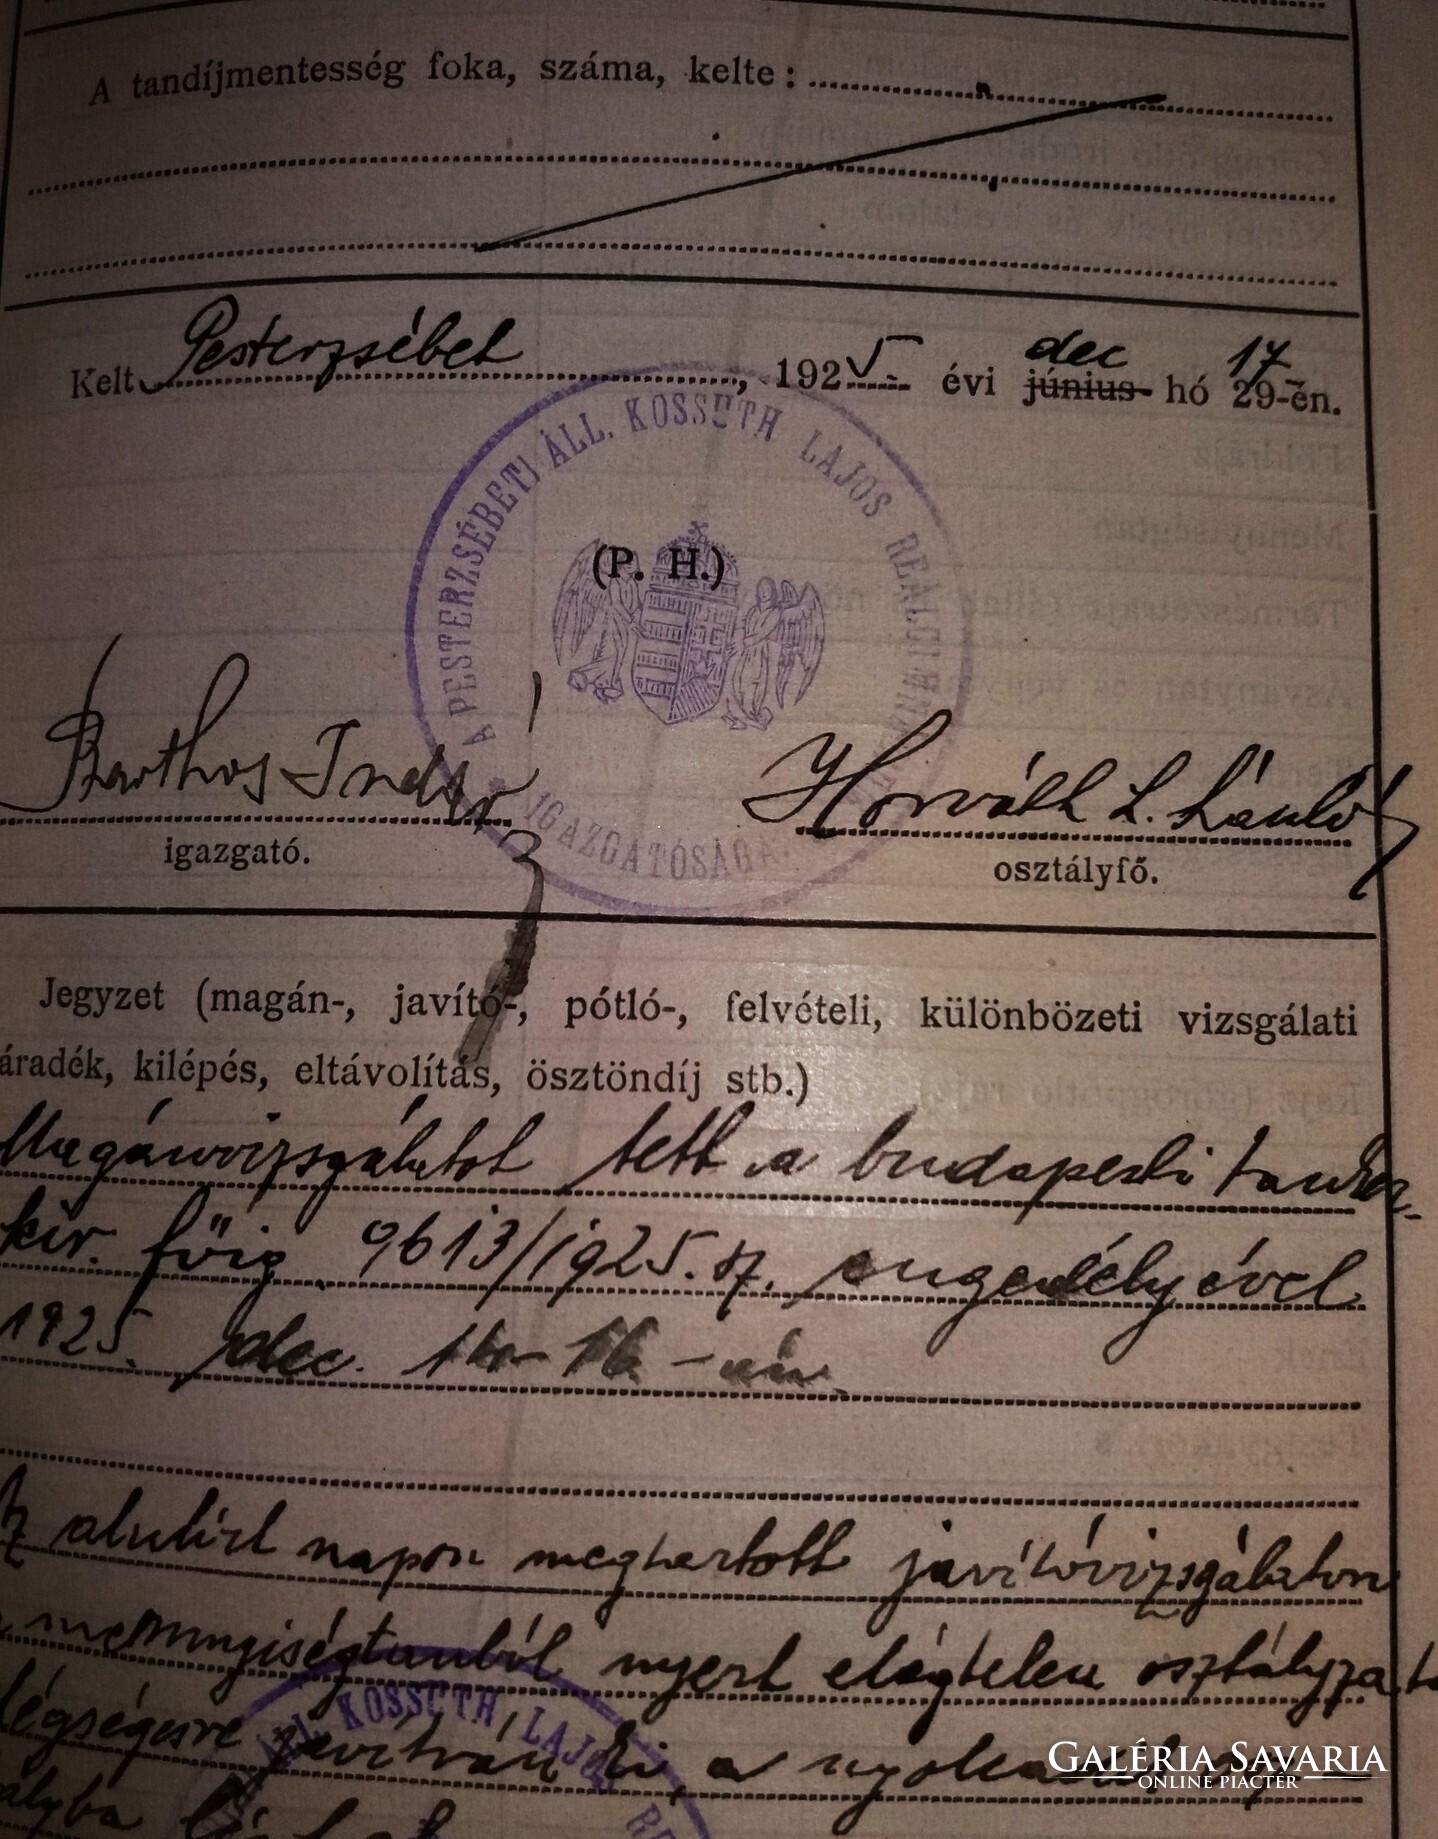 A tandíjmentesség foka, száma, kelte:
Kelt Pesterzsébet, 1925 évi június dec hó 29-én. 17
A PESTERZSÉBETI ÁLL. KOSSUTH LAJOS REÁLGIMN. IGAZGATÓSÁGA
(P. H.)
Horváth L. László
igazgató.
osztályfő.
Jegyzet (magán-, javító-, pótló-, felvételi, különbözeti vizsgálati
áradék, kilépés, eltávolítás, ösztöndíj stb.)
Magánvizsgálatot tett a budapesti tanker-
kir. főig 9613/1925. sz. engedélyével
1925. dec. 16-án.
Az alulírt napon megtartott javítóvizsgálaton
a mennyiségtanból nyert elégtelen osztályzatát
elégségesre javítván ki, a nyolcadik
KOSSUTH LAJOS RE
GALÉRIA SAVARIA
ONLINE PIACTÉR